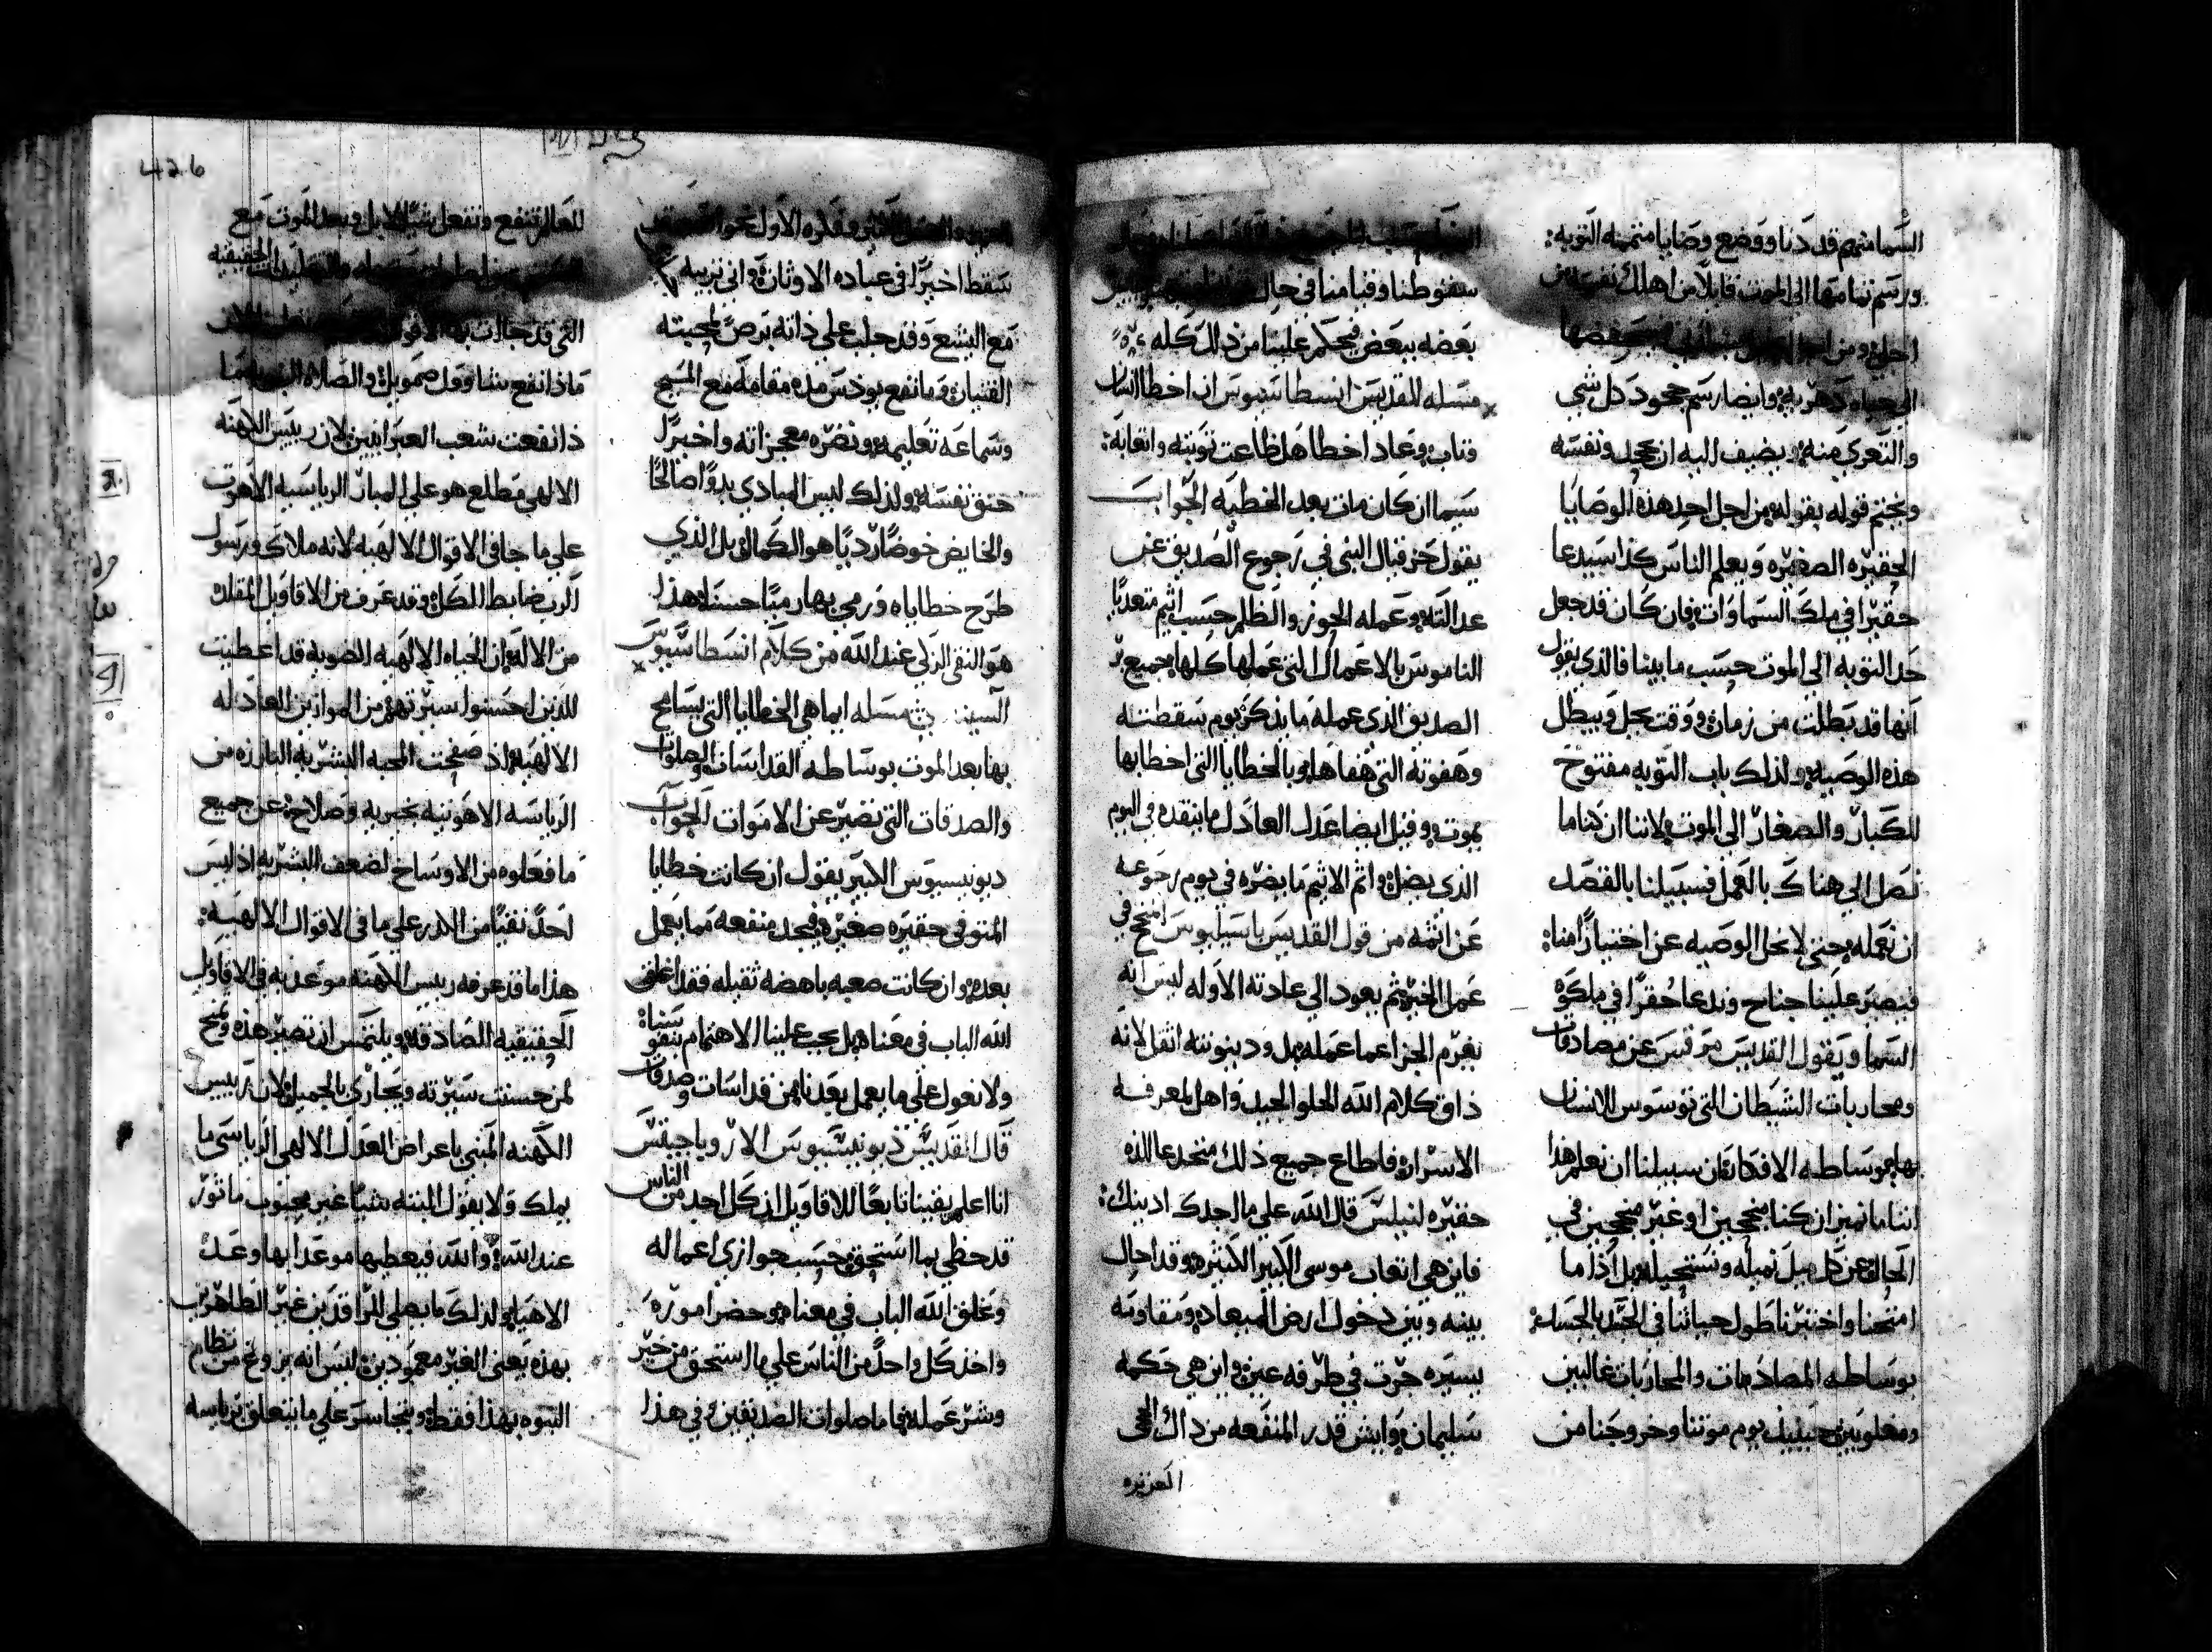 السما منهم قد دنا ووضع وصايا متممه التوبه:
ورسم تمامها الى الموت قايلا من اهلك نفسه من
اجلي ومن اجل
الى حياه دهريه وايضا رسم جحود كل شي
والتعري منه ويضيف اليه ان يجحد ونفسه
ويختم قوله بقوله من اجل احد هذه الوصايا
الحقيره الصغيره ويعلم الناس كذا سيدعا
حقيرا في ملك السماوات فان كان قد جعل
حد التوبه الى الموت حسب ما بينا فالذي يقول
انها قد بطلت من زمان ووقت يحل ويبطل
هذه الوصيه ولذلك باب التوبه مفتوح
للكبار والصغار الى الموت لاننا ان كنا ما
نصل الى هناك بالعمل فسبيلنا بالقصد
ان نعمله حتى لا نحل الوصيه عن اختيارا منا:
فيصير علينا جناح وندعا حقرا في ملكوة
السما ويقول القديس مرقس عن مصادفات
ومحاربات الشيطان التي توسوس للانسان
بها بوساطه الافكار ان سبيلنا ان نعلم هذا
اننا ما نميز ان كنا منجحين او غير منجحين في
الحال عن كل ميل نميله ونستحيله بل اذا ما
امتحنا واختبرنا طول حياتنا في الحد بالجسامه
بوساطه المصادمات والمحاربات غالبين
ومغلوبين حينيذ يوم موتنا وخروجنا من
سقوطنا وقيامنا في حال
بعضه ببعض فيحكم علينا من ذلك كله
مسله للقديس انسطاسيوس ان اخطا انسان
وتاب وعاد اخطا هل ضاعت توبته واتعابه:
سيما ان كان مات بعد الخطيه الجواب
يقول حزقيال النبي في رجوع الصديق عن
عدالته وعمله الجور والظلم حسب اثيم متعديا
الناموس بالاعمال التي عملها كلها جميع بر
الصديق الذي عمله ما يذكر يوم سقطته
وهفوته التي هفاها وبالخطايا التي اخطابها
يموت وقيل ايضا عدل العادل ما ينقذه في اليوم
الذي يضل واثم الاثيم ما يضره في يوم رجوعه
عن اثمه من قول القديس باسيليوس انجح في
عمل الخير ثم يعود الى عادته الاوله ليس انه
يغرم الجزا عما عمله بل ودينونته اثقل لانه
ذاق كلام الله الحلو الجيد واهل لمعرفه
الاسرار فاطاع جميع ذلك منخدعا للذه
حقيره لنيلس قال الله على ما اجدك ادينك:
فاين هي اتعاب موسى الكبير الكثيره وقد احال
بينه وبين دخول ارض الميعاد ومقاومه
يسيره جرت في طرفه عين واين هي حكمه
سليمان وايش قدر المنفعه من ذاك الحجى
العزيزه
سقط اخيرا في عباده الاوثان وابى تربيه
مع اليشع وقد جلب على ذاته برص لمحبته
القنيان وما نفع يوذس مده مقامه مع المسيح
وسماعه تعليمه ونضره معجزاته واخيرا
خنق نفسه ولذلك ليس المبادي بدوا صالحا
والخايض خوضا رديا هو الكمال بل الذي
طرح خطاياه ورمي بها رميا حسنا هذا
هو النقي الزكي عند الله من كلام انسطاسيوس
السينـ مسله ايما هي الخطايا التي يسامح
بها بعد الموت بوساطه القداسات والصلوات
والصدقات التي تصير عن الاموات الجواب
ديونيسيوس الكبير يقول ان كانت خطايا
المتوفي حقيره صغيره فيجد منفعه مما يعمل
بعده وان كانت صعبه باهضه ثقيله فقد اغلق
الله الباب في معناه بل يجب علينا الاهتمام بنفوسنا:
ولا نعول على ما يعمل بعدنا من قداسات وصدقات
قال القديس ذيونيسيوس الاريوباجيتس
انا اعلم يقينا تابعا للاقاويل ان كل احد من الناس
قد حظي بما استحق حسب جوازي اعماله
وغلق الله الباب في معناه وحضر اموره
واخذ كل واحد من الناس على ما استحق من خير
وشر عمله فاما صلوات الصديقين في هذا
للعالم تنفع وتفعل شيا لا بل وبعد الموت مع
التي قد جاات بها الاقوال
ماذا نفع شاوول صمويل والصلاه
ذا نفعت شعب العبرانيين لان ريس الكهنه
الالهي مطلع هو على المبار الرياسيه الاهوت
على ما جا في الاقوال الالهيه لانه ملاك ورسول
الرب ضابط الكل وقد عرف من الاقاويل المقلده
من الاله ان الحياه الالهيه الضويه قد اعطيت
للذين احسنوا سيرتهم من الموازين العادله
الالهيه اذ صفحت المحبه البشريه البارزه من
الرياسه الاهوتيه بخيريه وصلاح عن جميع
ما فعلوه من الاوساخ لضعف البشريه اذ ليس
احد نقيا من الدرن على ما في الاقوال الالهيه:
هذا ما قد عرفه ريس الكهنه موعد به في الاقاويل
الحقيقيه الصادقه ويلتمس ان تصير هذه وتمنح
لمن حسنت سيرته ويجازى بالجميل لان ريس
الكهنه المبني باعراض العدل الالهي الرياسي ما
يملك ولا يقول البته شيا غير محبوب ماثور
عند الله والله فيعطيها موعدا بها وعدا
الاهيا ولذلك ما يصلي للراقدين غير الطاهرين
بهذه يعني الغير معمودين ليس انه يروغ من نظام
النبوه بهذا فقط ويتجاسر على ما يتعلق برياسه
426